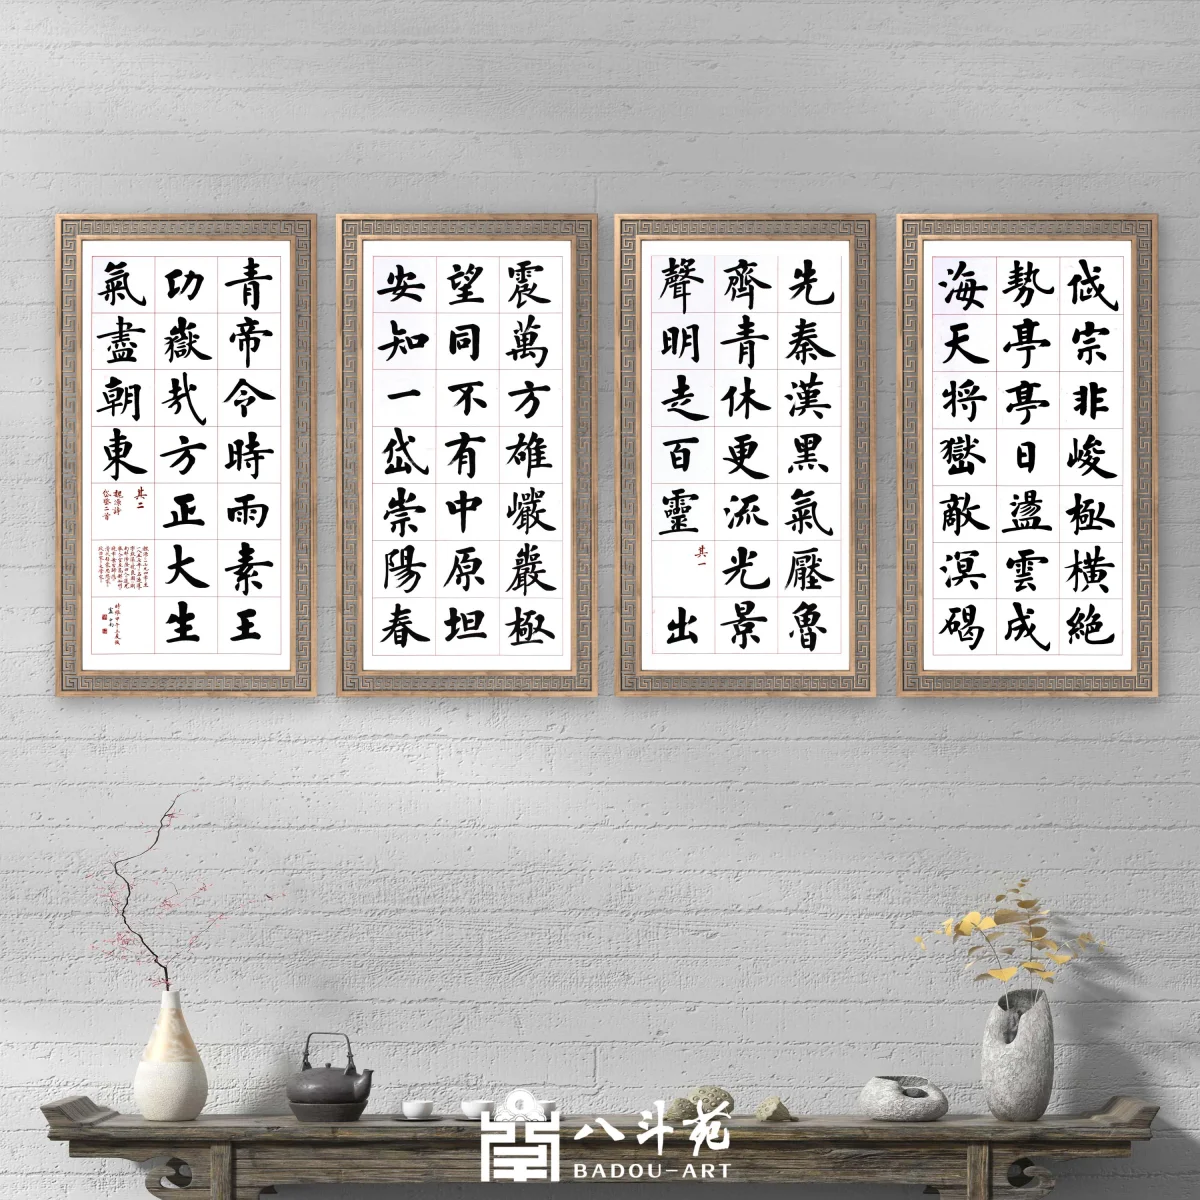 岱宗非峻極橫絕
勢亭亭日盪雲成
海天將嶽敵溟碣
先秦漢黑氣壓魯
齊青休更流光景
聲明走百靈
其一
出
震萬方雄巖巖極
望同不有中原坦
安知一岱崇陽春
青帝令時雨素王
功嶽哉方正大生
氣盡朝東
其二
魏源詩
八斗苑
BADOU-ART